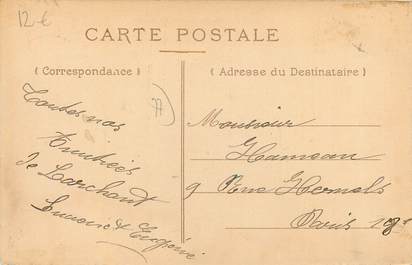 12 €
CARTE POSTALE
( Correspondance )
( Adresse du Destinataire )
77
Toutes nos
Amitiées
de Larchant
Eugénie
Monsieur
Hameau
9 Rue Hermels
Paris 18e